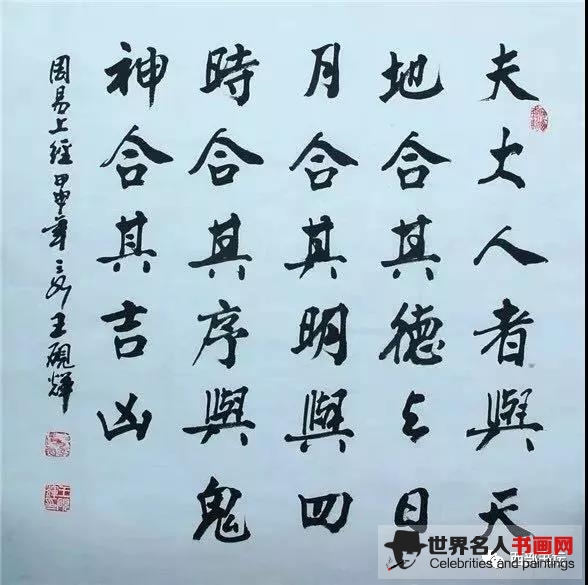 夫大人者與天
地合其德与日
月合其明與四
時合其序與鬼
神合其吉凶
周易上經 甲申年 王硯輝
世界名人书画网
Celebrities and paintings